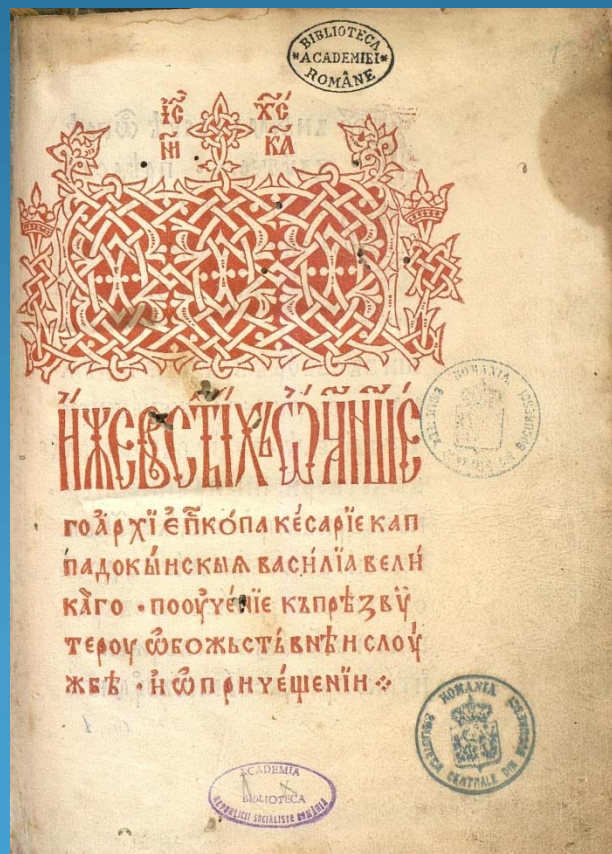 BIBLIOTECA
*ACADEMIEI*
ROMÂNE
І҃С Х҃С
НИ КА
И҆жевъст҃ыхъѡ҃ц҃ан҃ше
гоа҆рхїе҆пк҃о́пакеса́рїекап
падокы́нскыѧваси́лїавели́
ка́го • пооу҆че́нїекъпрѣзвѵ́
тероуѡ҆божьствьнѣ́ислоу́
жбѣ • и҆ѡ҆причеще́нїи
ROMANIA
BIBLIOTECA CENTRALE DIN BUCURESCI
ROMANIA
BIBLIOTECA CENTRALE DIN BUCURESCI
ACADEMIA
BIBLIOTECA
REPUBLICII SOCIALISTE ROMÂNIA